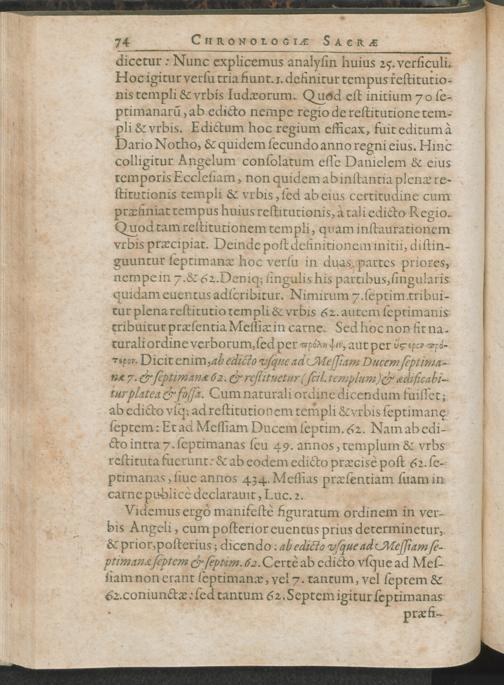 74 CHRONOLOGIÆ SACRÆ
dicetur : Nunc explicemus analysin huius 25. versiculi.
Hoc igitur versu tria fiunt. 1. definitur tempus restitutio-
nis templi & vrbis Iudæorum. Quod est initium 70 se-
ptimanarũ, ab edicto nempe regio de restitutione tem-
pli & vrbis. Edictum hoc regium efficax, fuit editum à
Dario Notho, & quidem secundo anno regni eius. Hinc
colligitur Angelum consolatum esse Danielem & eius
temporis Ecclesiam, non quidem ab instantia plenæ re-
stitutionis templi & vrbis, sed ab eius certitudine cum
præfiniat tempus huius restitutionis, à tali edicto Regio.
Quod tam restitutionem templi, quam instaurationem
vrbis præcipiat. Deinde post definitionem initii, distin-
guuntur septimanæ hoc versu in duas partes priores,
nempe in 7. & 62. Deniq; singulis his partibus, singularis
quidam euentus adscribitur. Nimirum 7. septim. tribui-
tur plena restitutio templi & vrbis 62. autem septimanis
tribuitur præsentia Messiæ in carne. Sed hoc non fit na-
turali ordine verborum, sed per πρόληψιν, aut per ὕςερον πρό-
τερον. Dicit enim, ab edicto vsque ad Messiam Ducem septima-
næ 7. & septimanæ 62. & restituetur (scil. templum) & ædificabi-
tur platea & fossa. Cum naturali ordine dicendum fuisset;
ab edicto vsq; ad restitutionem templi & vrbis septimanę
septem : Et ad Messiam Ducem septim. 62. Nam ab edi-
cto intra 7. septimanas seu 49. annos, templum & vrbs
restituta fuerunt : & ab eodem edicto præcise post 62. se-
ptimanas, siue annos 434. Messias præsentiam suam in
carne publicè declarauit, Luc. 2.
Videmus ergò manifestè figuratum ordinem in ver-
bis Angeli, cum posterior euentus prius determinetur,
& prior, posterius ; dicendo : ab edicto vsque ad Messiam se-
ptimanæ septem & septim. 62. Certè ab edicto vsque ad Mes-
siam non erant septimanæ, vel 7. tantum, vel septem &
62. coniunctæ : sed tantum 62. Septem igitur septimanas
præfi-